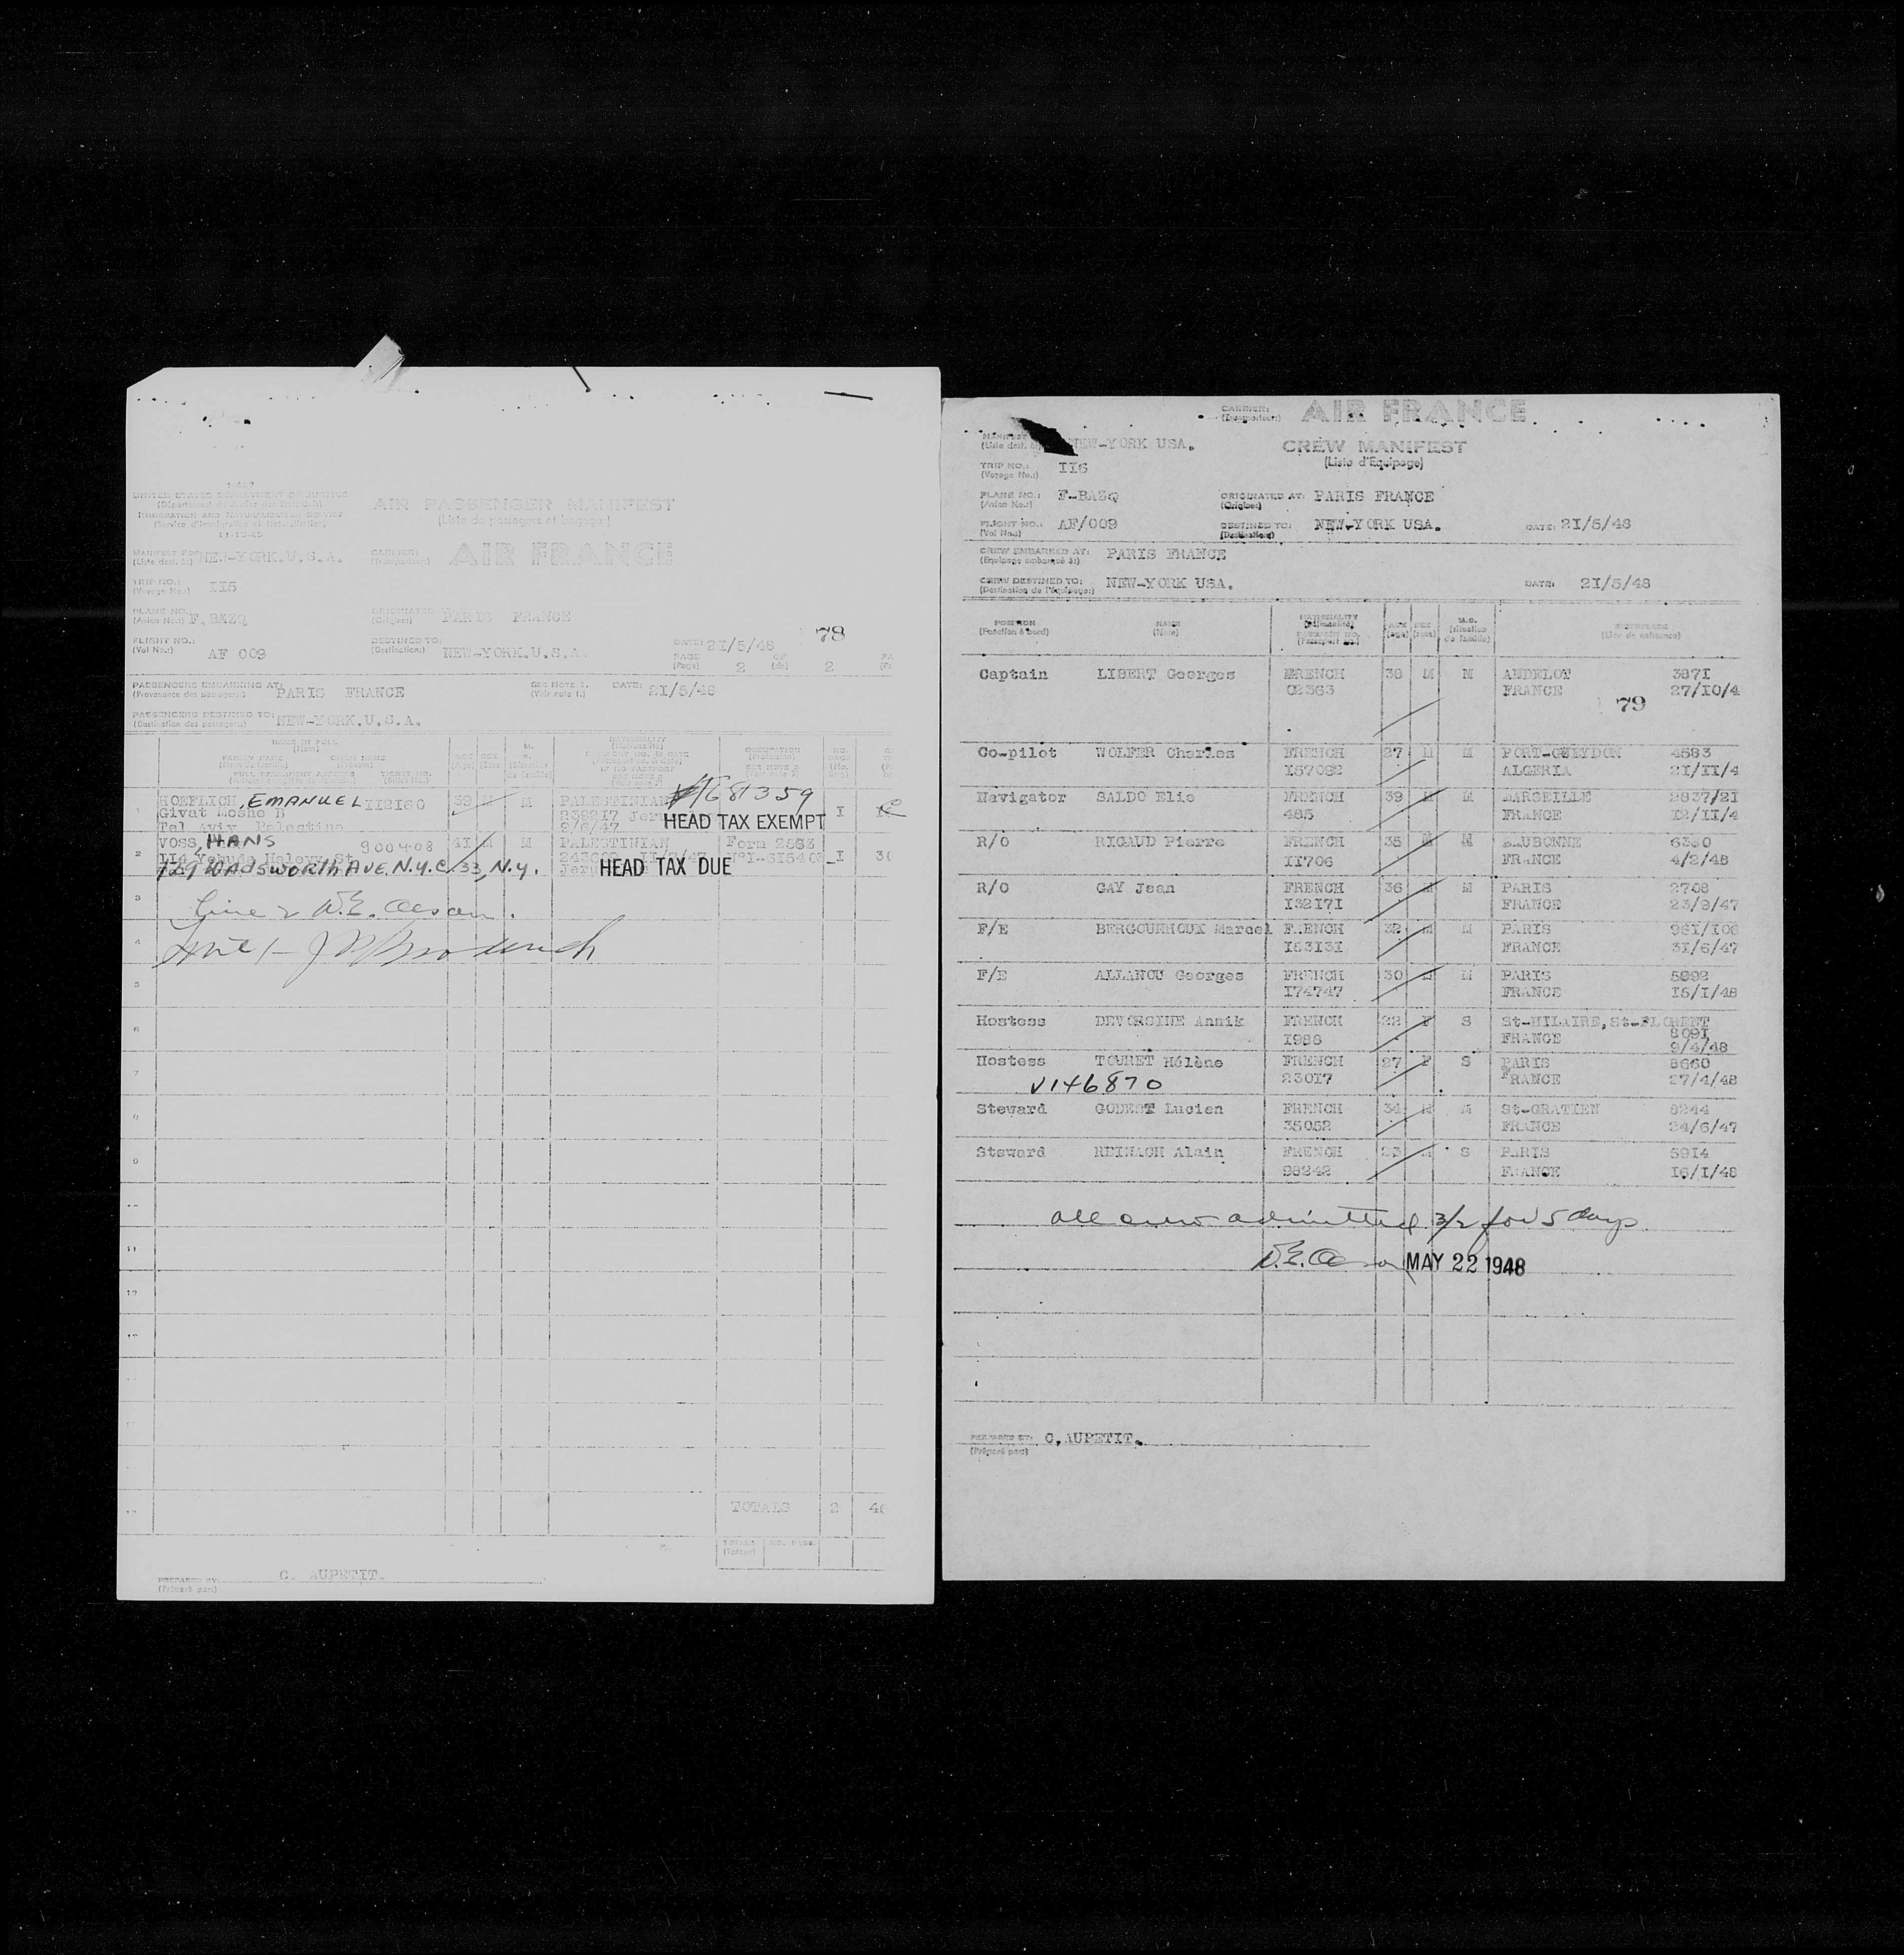 UNITED STATES DEPARTMENT OF JUSTICE
IMMIGRATION AND NATURALIZATION SERVICE
(Service d'Immigration et Naturalisation)
11-15-45
AIR PASSENGER MANIFEST
(Liste de passagers et bagages)
MANIFEST FOR NEW-YORK.U.S.A.
(Liste dest. à:)
CARRIER: AIR FRANCE
(Transporteur:)
TRIP NO.: II5
(Voyage No.:)
PLANE NO. F.BAZQ
(Avion No.:)
ORIGINATED PARIS FRANCE
(Origine:)
FLIGHT NO.: AF 009
(Vol No.:)
DESTINED TO: NEW-YORK.U.S.A.
(Destination:)
DATE: 2I/5/48
78
PAGE 2 OF 2
(Page) (de)
PASSENGERS EMBARKING AT: PARIS FRANCE
(Provenance des passagers)
See Note 1.
(Voir note 1.)
DATE: 2I/5/48
PASSENGERS DESTINED TO: NEW-YORK.U.S.A.
(Destination des passagers)
NAME IN FULL
(Nom)
FAMILY NAME GIVEN NAME
FULL PERMANENT ADDRESS TICKET NO.
AGE SEX
NATIONALITY
(Nationalité)
OCCUPATION
(Profession)
1 HOEFLICH, EMANUEL II2I60 39 M M PALESTINIAN I
Givat Moshe B 239217
Tel Aviv Palestine 9/6/47
HEAD TAX EXEMPT
2 VOSS, HANS 900408 4I M M PALESTINIAN Form 2553 I
II4 Yehuda Halevy St
729 WADSWORTH AVE. N.Y.C. 33, N.Y. HEAD TAX DUE
3 Line 2 W.E. Olesen.
4 Line 1 -
5
6
7
8
9
11
12
TOTALS 2
PREPARED BY: C. AUPETIT.
(Préparé par:)
CARRIER: AIR FRANCE
(Transporteur:)
MANIFEST NEW-YORK USA.
(Liste dest. à:)
CREW MANIFEST
(Liste d'Equipage)
TRIP NO.: II6
(Voyage No.:)
PLANE NO.: F-BAZQ
(Avion No.:)
ORIGINATED AT: PARIS FRANCE
(Origine:)
FLIGHT NO.: AF/009
(Vol No.:)
DESTINED TO: NEW-YORK USA.
(Destination:)
DATE: 2I/5/48
CREW EMBARKED AT: PARIS FRANCE
(Equipage embarqué à:)
CREW DESTINED TO: NEW-YORK USA.
(Destination de l'équipage:)
DATE: 2I/5/48
POSITION NAME NATIONALITY AGE SEX M.S. BIRTHPLACE
(Fonction à bord) (Nom) (Nationalité) (Age) (Sexe) (situation de famille) (Lieu de naissance)
PASSPORT NO.
Captain LIBERT Georges FRENCH 38 M M ANDELOT 387I
02363 FRANCE 27/10/4
79
Co-pilot WOLFER Charles FRENCH 27 M M PORT-GUEYDON 4583
I57092 ALGERIA 2I/II/4
Navigator SALDO Elie FRENCH 39 M M MARSEILLE 2837/2I
485 FRANCE I2/II/4
R/O RIGAUD Pierre FRENCH 35 M M EAUBONNE
II706 FRANCE 4/2/48
R/O GAY Jean FRENCH 36 M M PARIS 2708
I32I7I FRANCE 23/9/47
F/E BERGOUNHOUX Marcel FRENCH 32 M M PARIS
I53I3I FRANCE 3I/6/47
F/E ALLANOU Georges FRENCH 30 M M PARIS 5992
I74747 FRANCE I5/I/48
Hostess DEVORSINE Annik FRENCH 22 F S St-HILAIRE,St-FLORENT
I988 FRANCE 809I
9/4/48
Hostess TOURET Hélène FRENCH 27 F S PARIS 8660
V146870 23017 FRANCE 27/4/48
Steward GODEST Lucien FRENCH 34 M M St-GRATIEN 8244
35052 FRANCE 24/6/47
Steward REINACH Alain FRENCH 23 M S PARIS 59I4
98242 FRANCE I6/I/48
all crew admitted 3/2 for 5 days
W.E. Olesen MAY 22 1948
PREPARED BY: C.AUPETIT.
(Préparé par:)